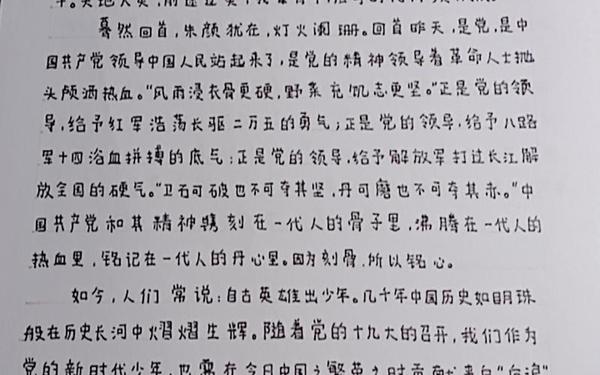 蓦然回首，朱颜犹在，灯火阑珊。回首昨天，是党，是中
国共产党领导中国人民站起来了，是党的精神领导着革命人士抛
头颅洒热血。“风雨浸衣骨更硬，野菜充饥志更坚。”正是党的领
导，给予红军浩荡长驱二万五的勇气；正是党的领导，给予八路
军十四浴血拼搏的底气；正是党的领导，给予解放军打过长江解
放全国的硬气。“卫石可破也不可夺其坚，丹可磨也不可夺其赤。”中
国共产党和其精神镌刻在一代人的骨子里，沸腾在一代人的
热血里，铭记在一代人的丹心里。因为刻骨，所以铭心。
如今，人们常说：自古英雄出少年。几十年中国历史如明珠
般在历史长河中熠熠生辉。随着党的十九大的召开，我们作为
党的新时代少年，也需在今日中国之繁英之时贡献来自“后浪”